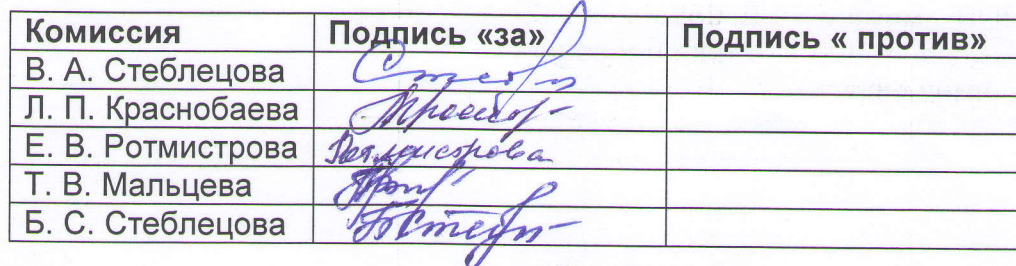 Комиссия Подпись «за» Подпись « против»
В. А. Стеблецова
Л. П. Краснобаева
Е. В. Ротмистрова Ротмистрова
Т. В. Мальцева
Б. С. Стеблецова